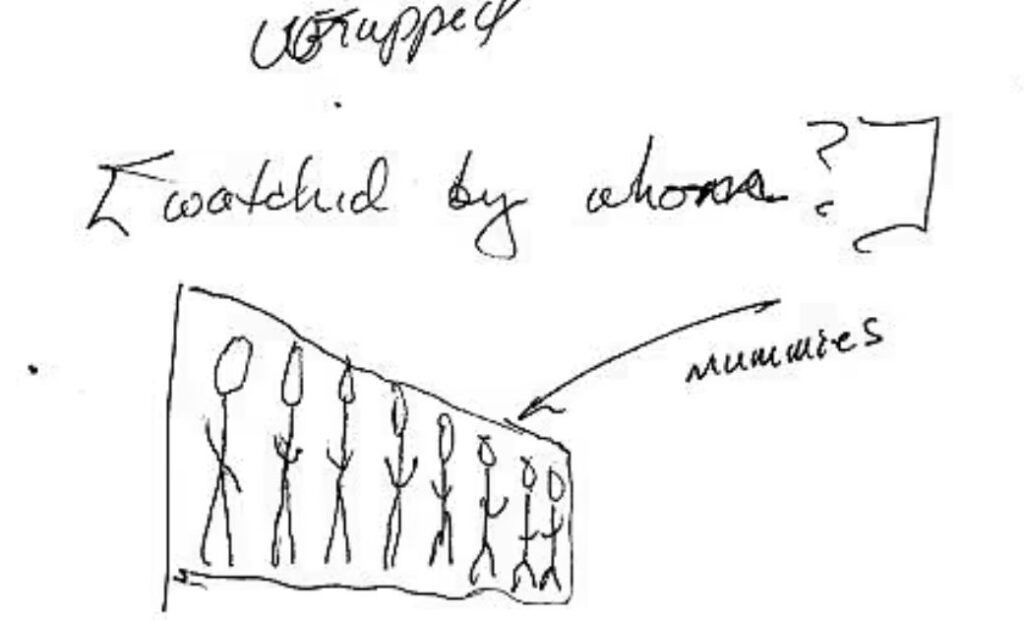 [watched by whom?]
mummies